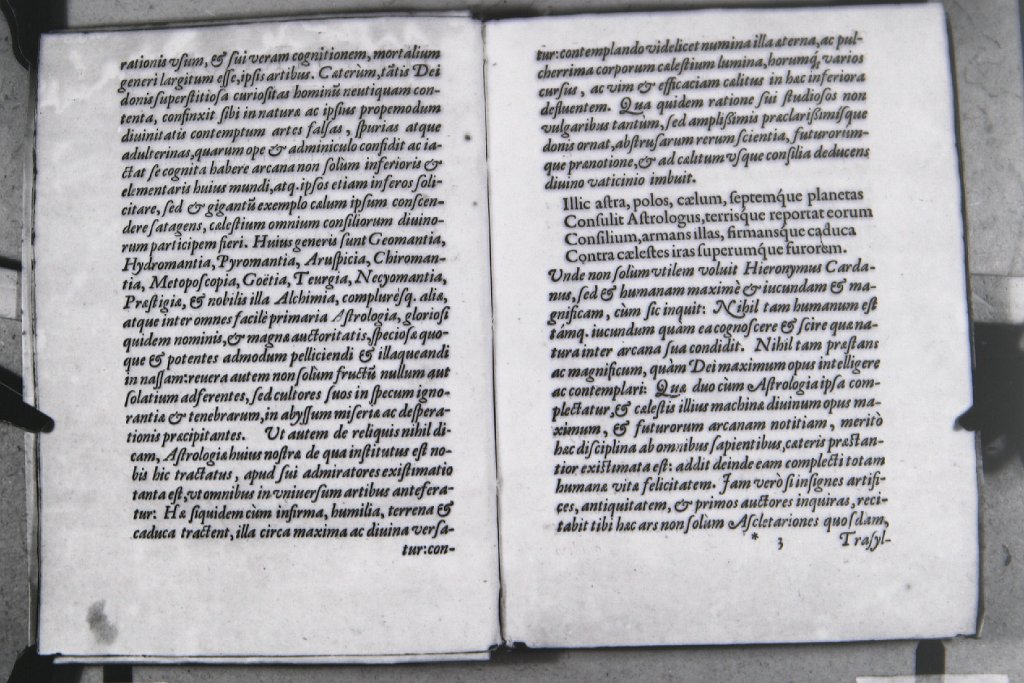 rationis vsum, & sui veram cognitionem, mortalium
generi largitum esse, ipsis artibus. Cæterum, tātis Dei
donis superstitiosa curiositas hominū neutiquam con-
tenta, confinxit sibi in naturæ ac ipsius propemodum
diuinitatis contemptum artes falsas, spurias atque
adulterinas, quarum ope & adminiculo confidit ac ia-
ctat se cognita habere arcana non solùm inferioris &
elementaris huius mundi, atq. ipsos etiam inferos soli-
citare, sed & gigantū exemplo cælum ipsum conscen-
dere satagens, cælestium omnium consiliorum diuino-
rum participem fieri. Huius generis sunt Geomantia,
Hydromantia, Pyromantia, Aruspicia, Chiroman-
tia, Metoposcopia, Goëtia, Teurgia, Necyomantia,
Præstigiæ, & nobilis illa Alchimia, complurésq. aliæ,
atque inter omnes facilè primaria Astrologia, gloriosi
quidem nominis, & magnæ auctoritatis, speciosa quo-
que & potentes admodum pelliciendi & illaqueandi
in nassam: reuera autem non solùm fructū nullum aut
solatium adferentes, sed cultores suos in specum igno-
rantiæ & tenebrarum, in abyssum miseriæ ac despera-
tionis præcipitantes. Vt autem de reliquis nihil di-
cam, Astrologiæ huius nostræ de qua institutus est no-
bis hic tractatus, apud sui admiratores existimatio
tanta est, vt omnibus in vniuersum artibus anteferа-
tur. Hæ siquidem cùm infirma, humilia, terrena &
caduca tractent, illa circa maxima ac diuina versa-
tur: con-
tur: contemplando videlicet numina illa æterna, ac pul-
cherrima corporum cælestium lumina, horumq́, varios
cursus, ac vim & efficaciam cælitus in hæc inferiora
defluentem. Qua quidem ratione sui studiosos non
vulgaribus tantùm, sed amplißimis præclarißimisque
donis ornat, abstrusarum rerum scientia, futurorum-
que prænotione, & ad cælitum vsque consilia deducens
diuino vaticinio imbuit.
Illic astra, polos, cælum, septemque planetas
Consulit Astrologus, terrisque reportat eorum
Consilium, armans illas, firmansque caduca
Contra cælestes iras superumque furorem.
Vnde non solùm vtilem voluit Hieronymus Carda-
nus, sed & humanam maximè & iucundam & ma-
gnificam, cùm sic inquit: Nihil tam humanum est
támq. iucundum quàm ea cognoscere & scire quæ na-
tura inter arcana sua condidit. Nihil tam præstans
ac magnificum, quàm Dei maximum opus intelligere
ac contemplari: Quæ duo cùm Astrologia ipsa com-
plectatur, & cælestis illius machinæ diuinum opus ma-
ximum, & futurorum arcanam notitiam, meritò
hæc disciplina ab omnibus sapientibus, cæteris præstan-
tior existimata est: addit deinde eam complecti totam
humanæ vitæ felicitatem. Iam verò si insignes artifi-
ces, antiquitatem, & primos auctores inquiras, reci-
tabit tibi hæc ars non solùm Ascletariones quosdam,
* 3 Trasyl-